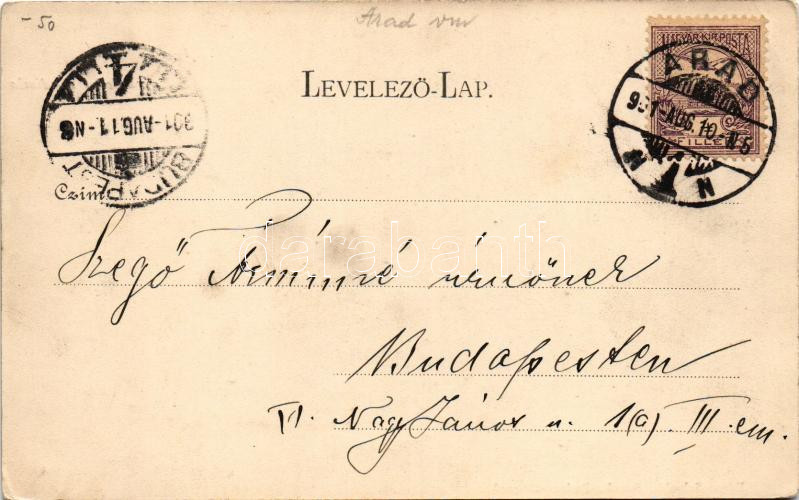 -50
Arad vm
LEVELEZŐ-LAP.
MAGYAR KIR. POSTA
FILLÉR
ARAD
901-AUG.10.-N5
N N
BUDAPEST
901-AUG.11.-N8
4
Czim
Szegő Árminné úrnőnek
darabanth
Budapesten
VI. Nagy János u. 1(a) III em.